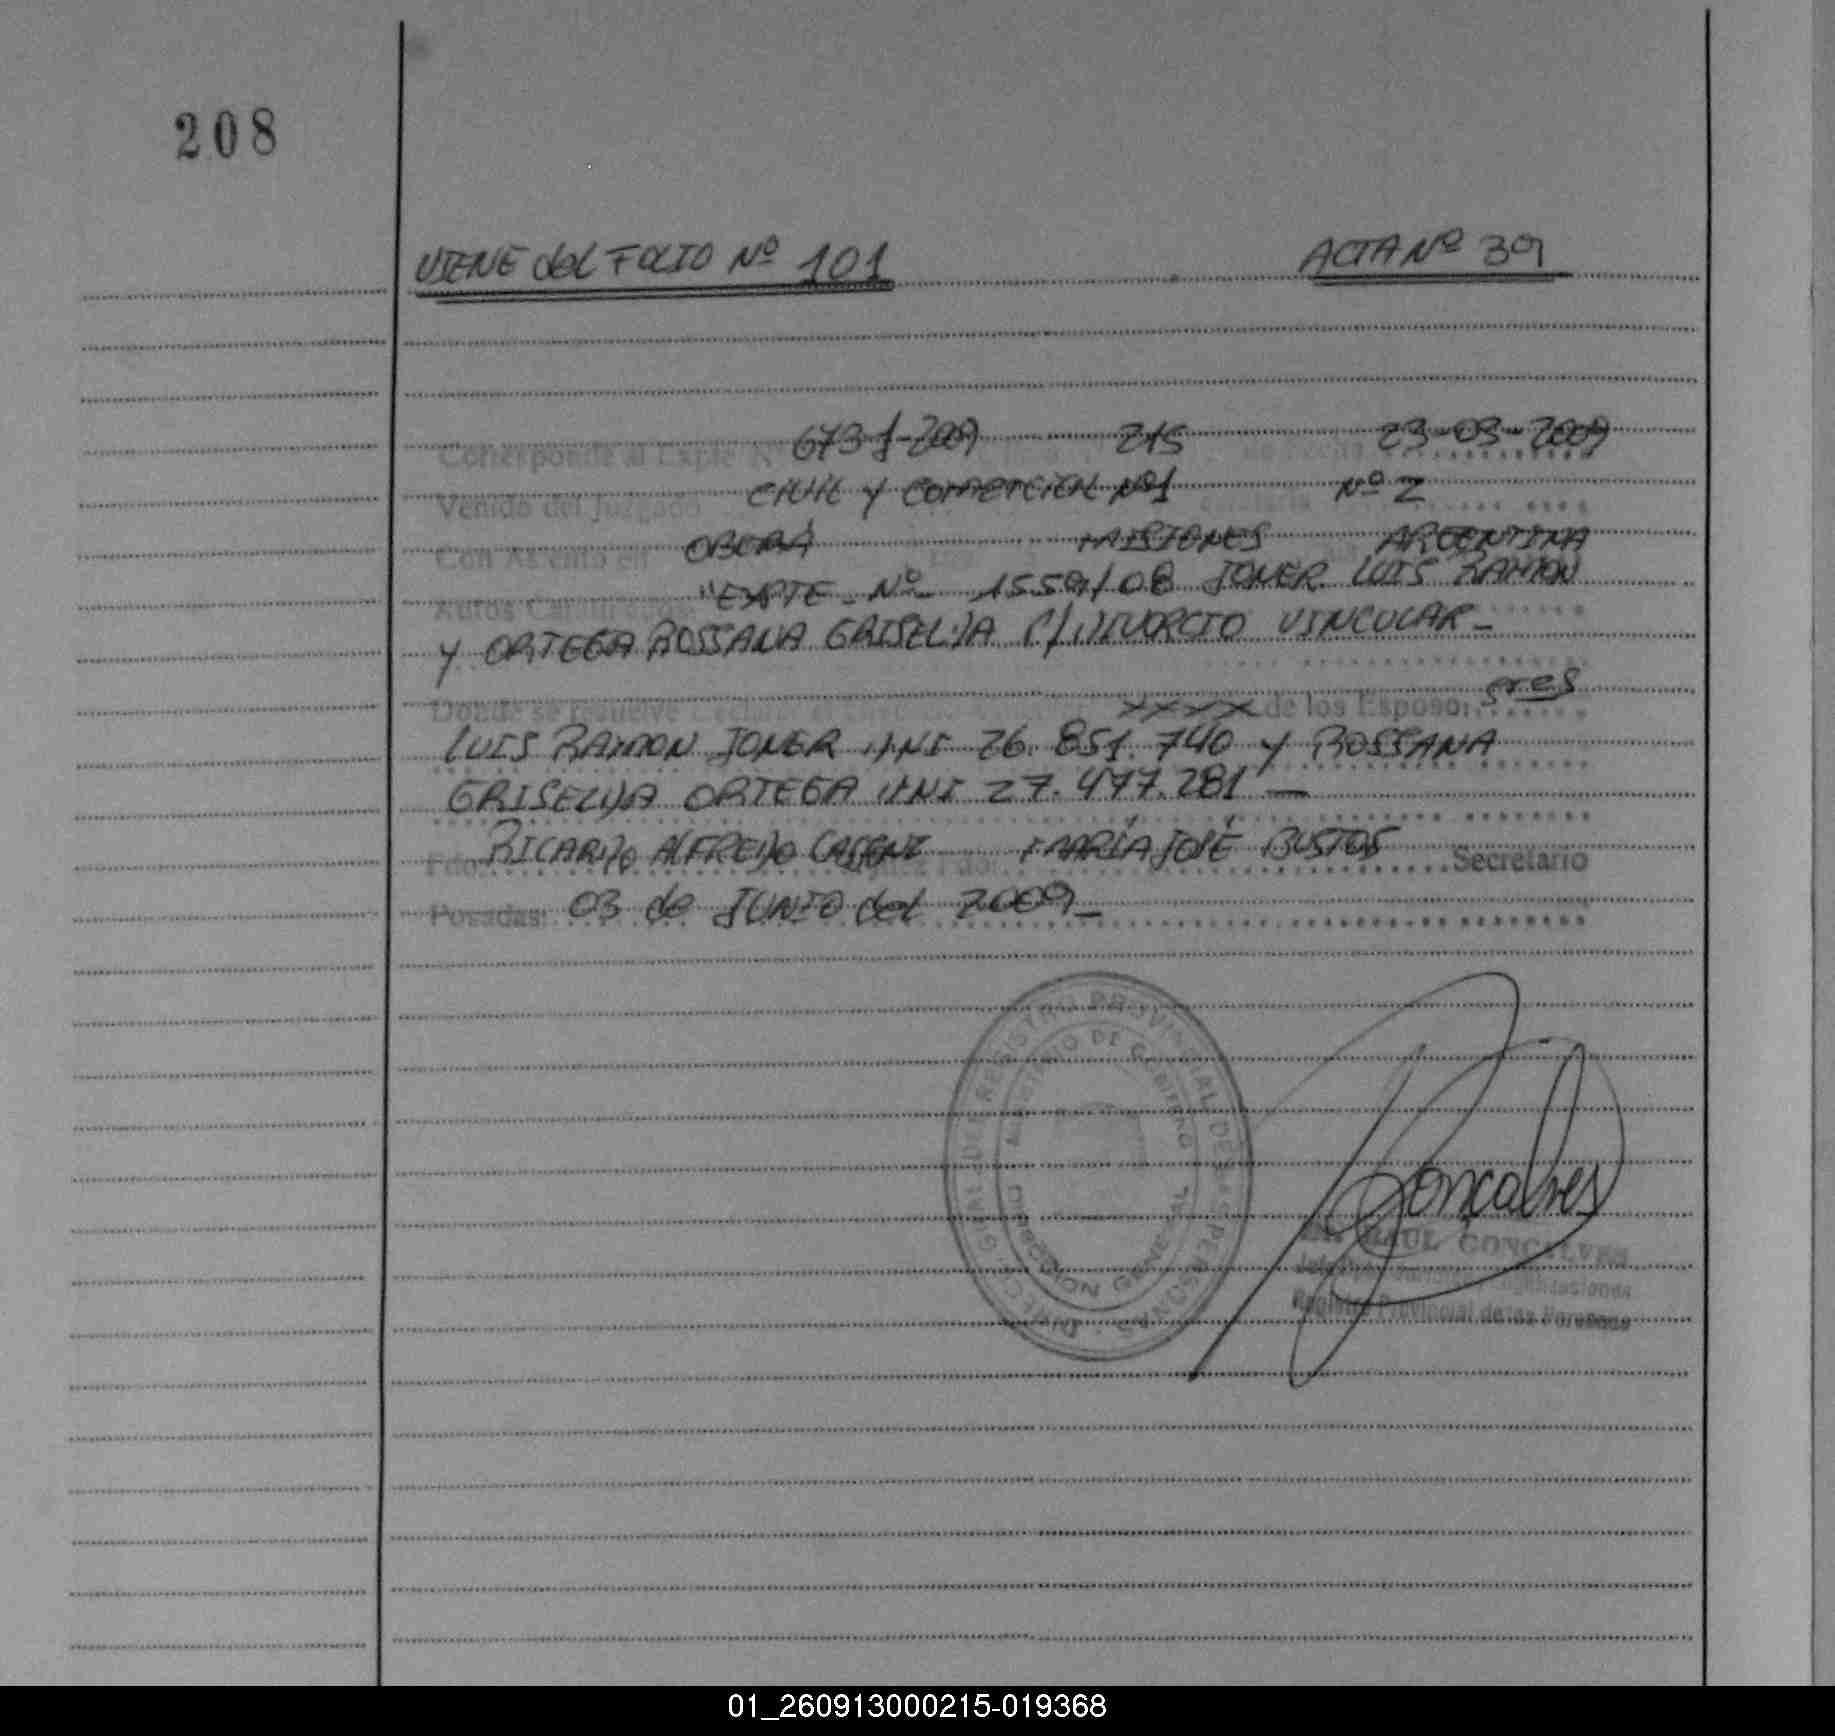 208
VIENE del FOLIO Nº 101 ACTA Nº 39
Corresponde al Expte Nº 673-J-2009 215 de Fecha 23-03-2009
Venido del Juzgado CIVIL Y COMERCIAL Nº1 Secretaria Nº 2
Con Asiento en OBERÁ MISIONES ARGENTINA
Autos Caratulados "EXPTE. Nº 1559/08 JONER LUIS RAMON
Y ORTEGA ROSSANA GRISELDA S/ DIVORCIO VINCULAR-
Donde se resuelve XXXX de los Esposo: sres
LUIS RAMON JONER DNI 26.851.740 Y ROSSANA
GRISELDA ORTEGA DNI 27.477.281 —
Fdo: RICARDO ALFREDO Fdo: MARÍA JOSÉ BUSTOS Secretario
Posadas: 03 de JUNIO del 2009-
DIRECC. GRAL. DEL REGISTRO PROVINCIAL DE LAS PERSONAS
MINISTERIO DE GOBIERNO
Gonçalves
RAUL GONÇALVES
Registro Provincial de las Personas
01_260913000215-019368